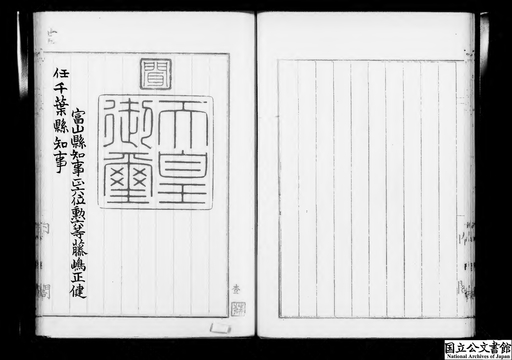 聞
天皇
御璽
富山縣知事正六位勲六等藤嶋正健
任千葉縣知事
内
閣
国立公文書館
National Archives of Japan